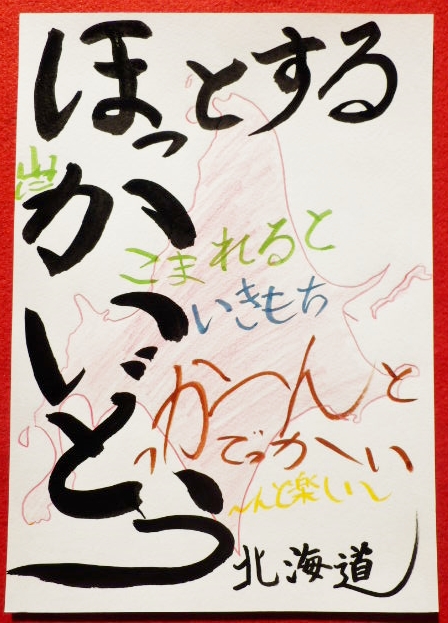 ほっとする
山に
かこまれると
いいきもち
どか〜んと
でっか〜い
う〜んと楽しい
北海道